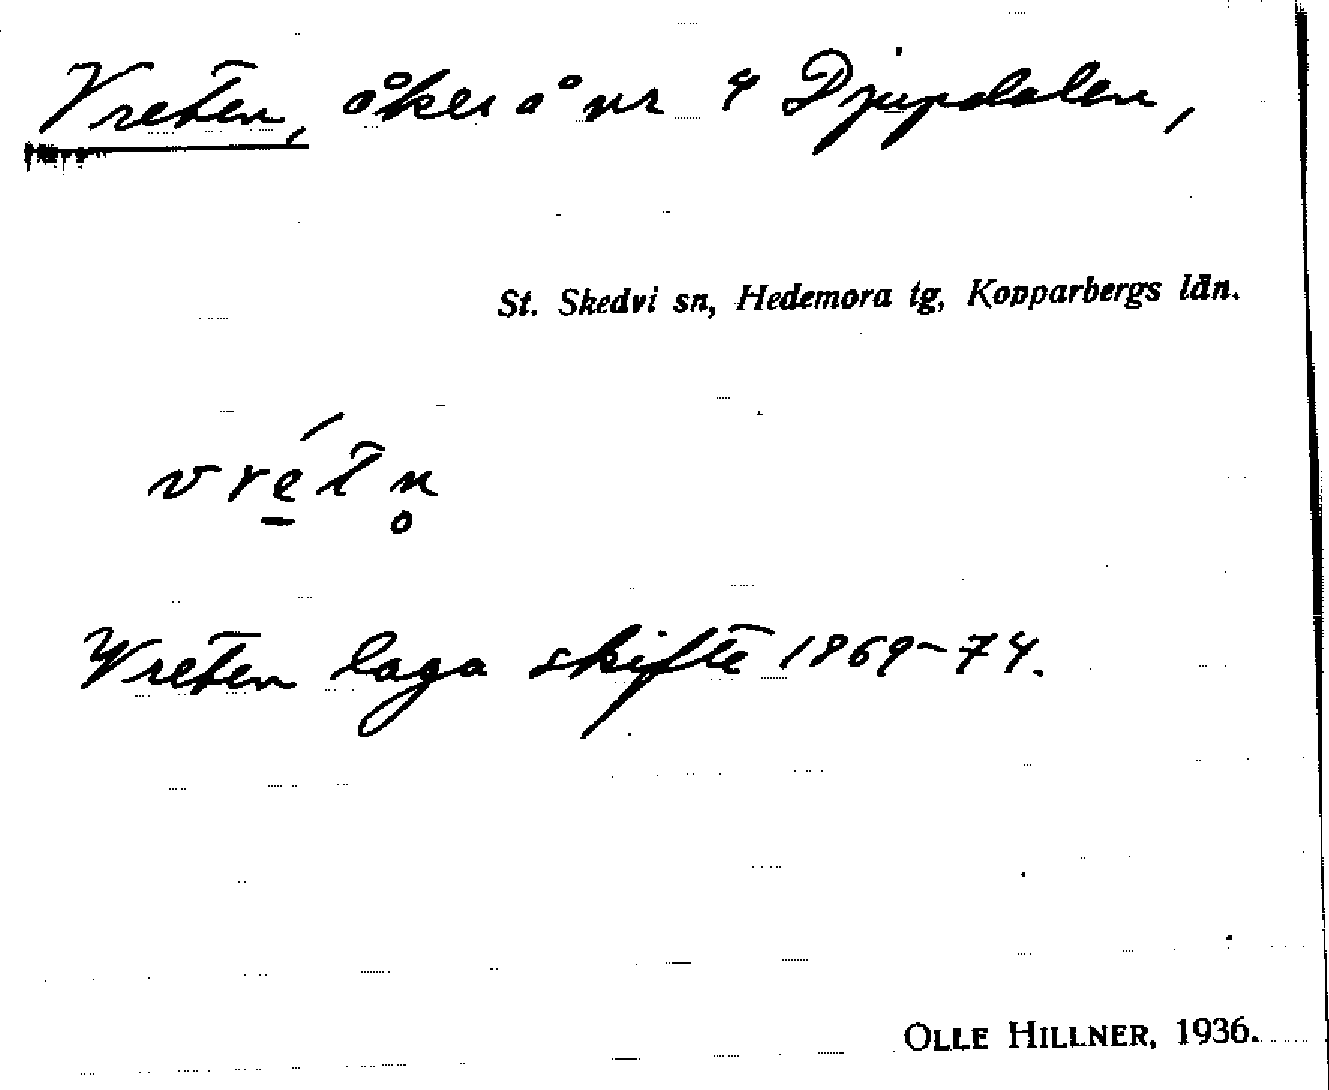 Vreten, åker å nr 4 Djupdalen,
St. Skedvi sn, Hedemora tg, Kopparbergs län.
vré̱tn̥
Wreten laga skifte 1869-74.
OLLE HILLNER, 1936.